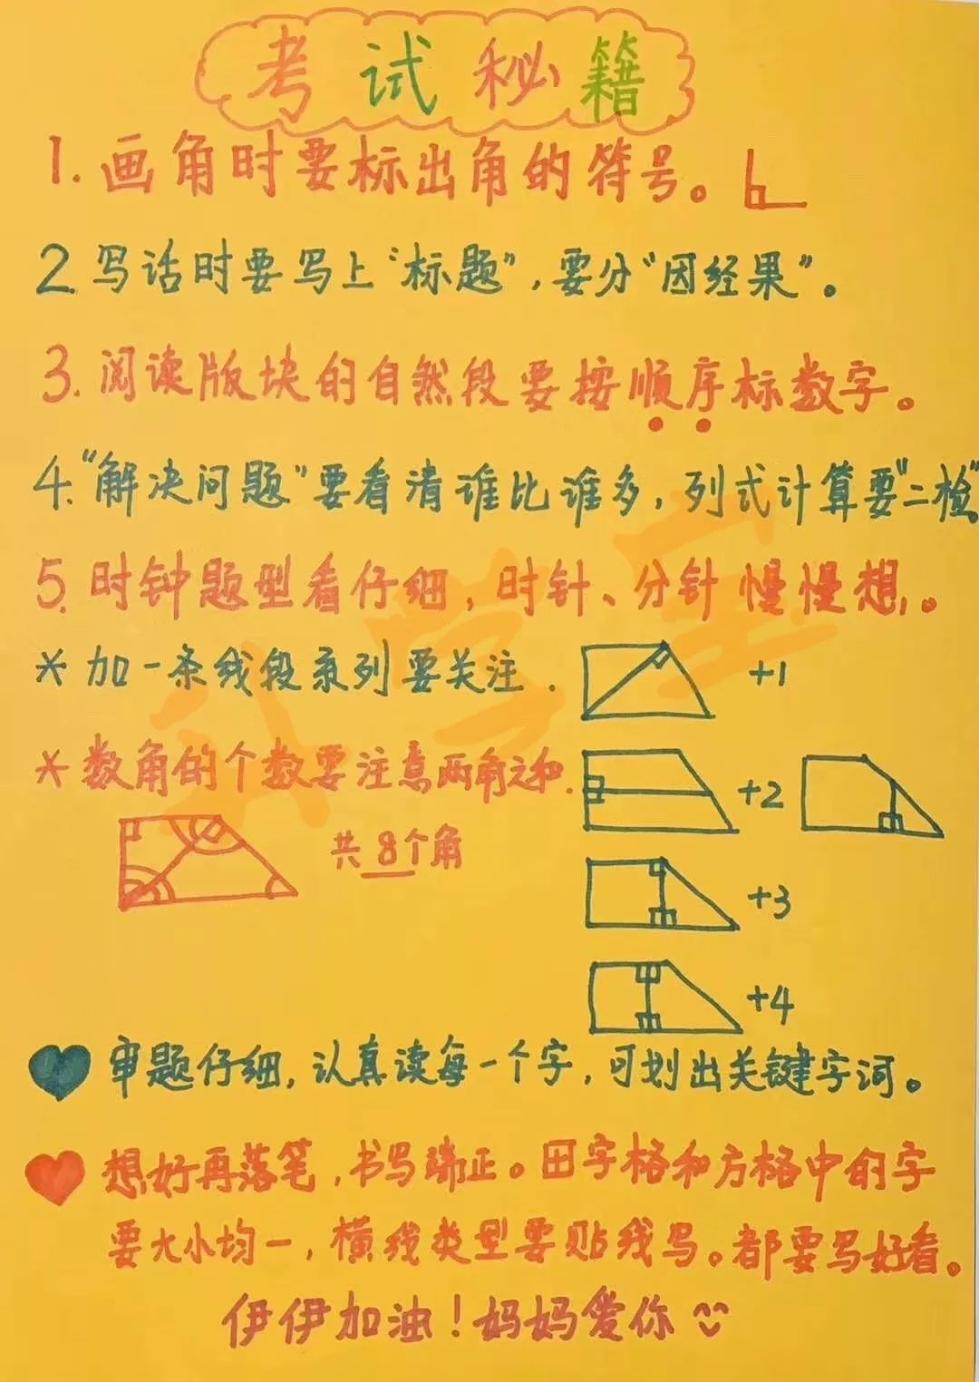 考试秘籍
1. 画角时要标出角的符号。
2. 写话时要写上“标题”，要分“因经果”。
3. 阅读版块的自然段要按顺序标数字。
4.“解决问题”要看清谁比谁多，列式计算要“二检”
5. 时钟题型看仔细，时针、分针慢慢想。
* 加一条线段系列要关注.
+1
* 数角的个数要注意两角之和.
+2
共8个角
+3
+4
审题仔细，认真读每一个字，可划出关键字词。
想好再落笔，书写端正。田字格和方格中的字
要大小均一，横线类型要贴线写。都要写好看。
伊伊加油！妈妈爱你
升学宝